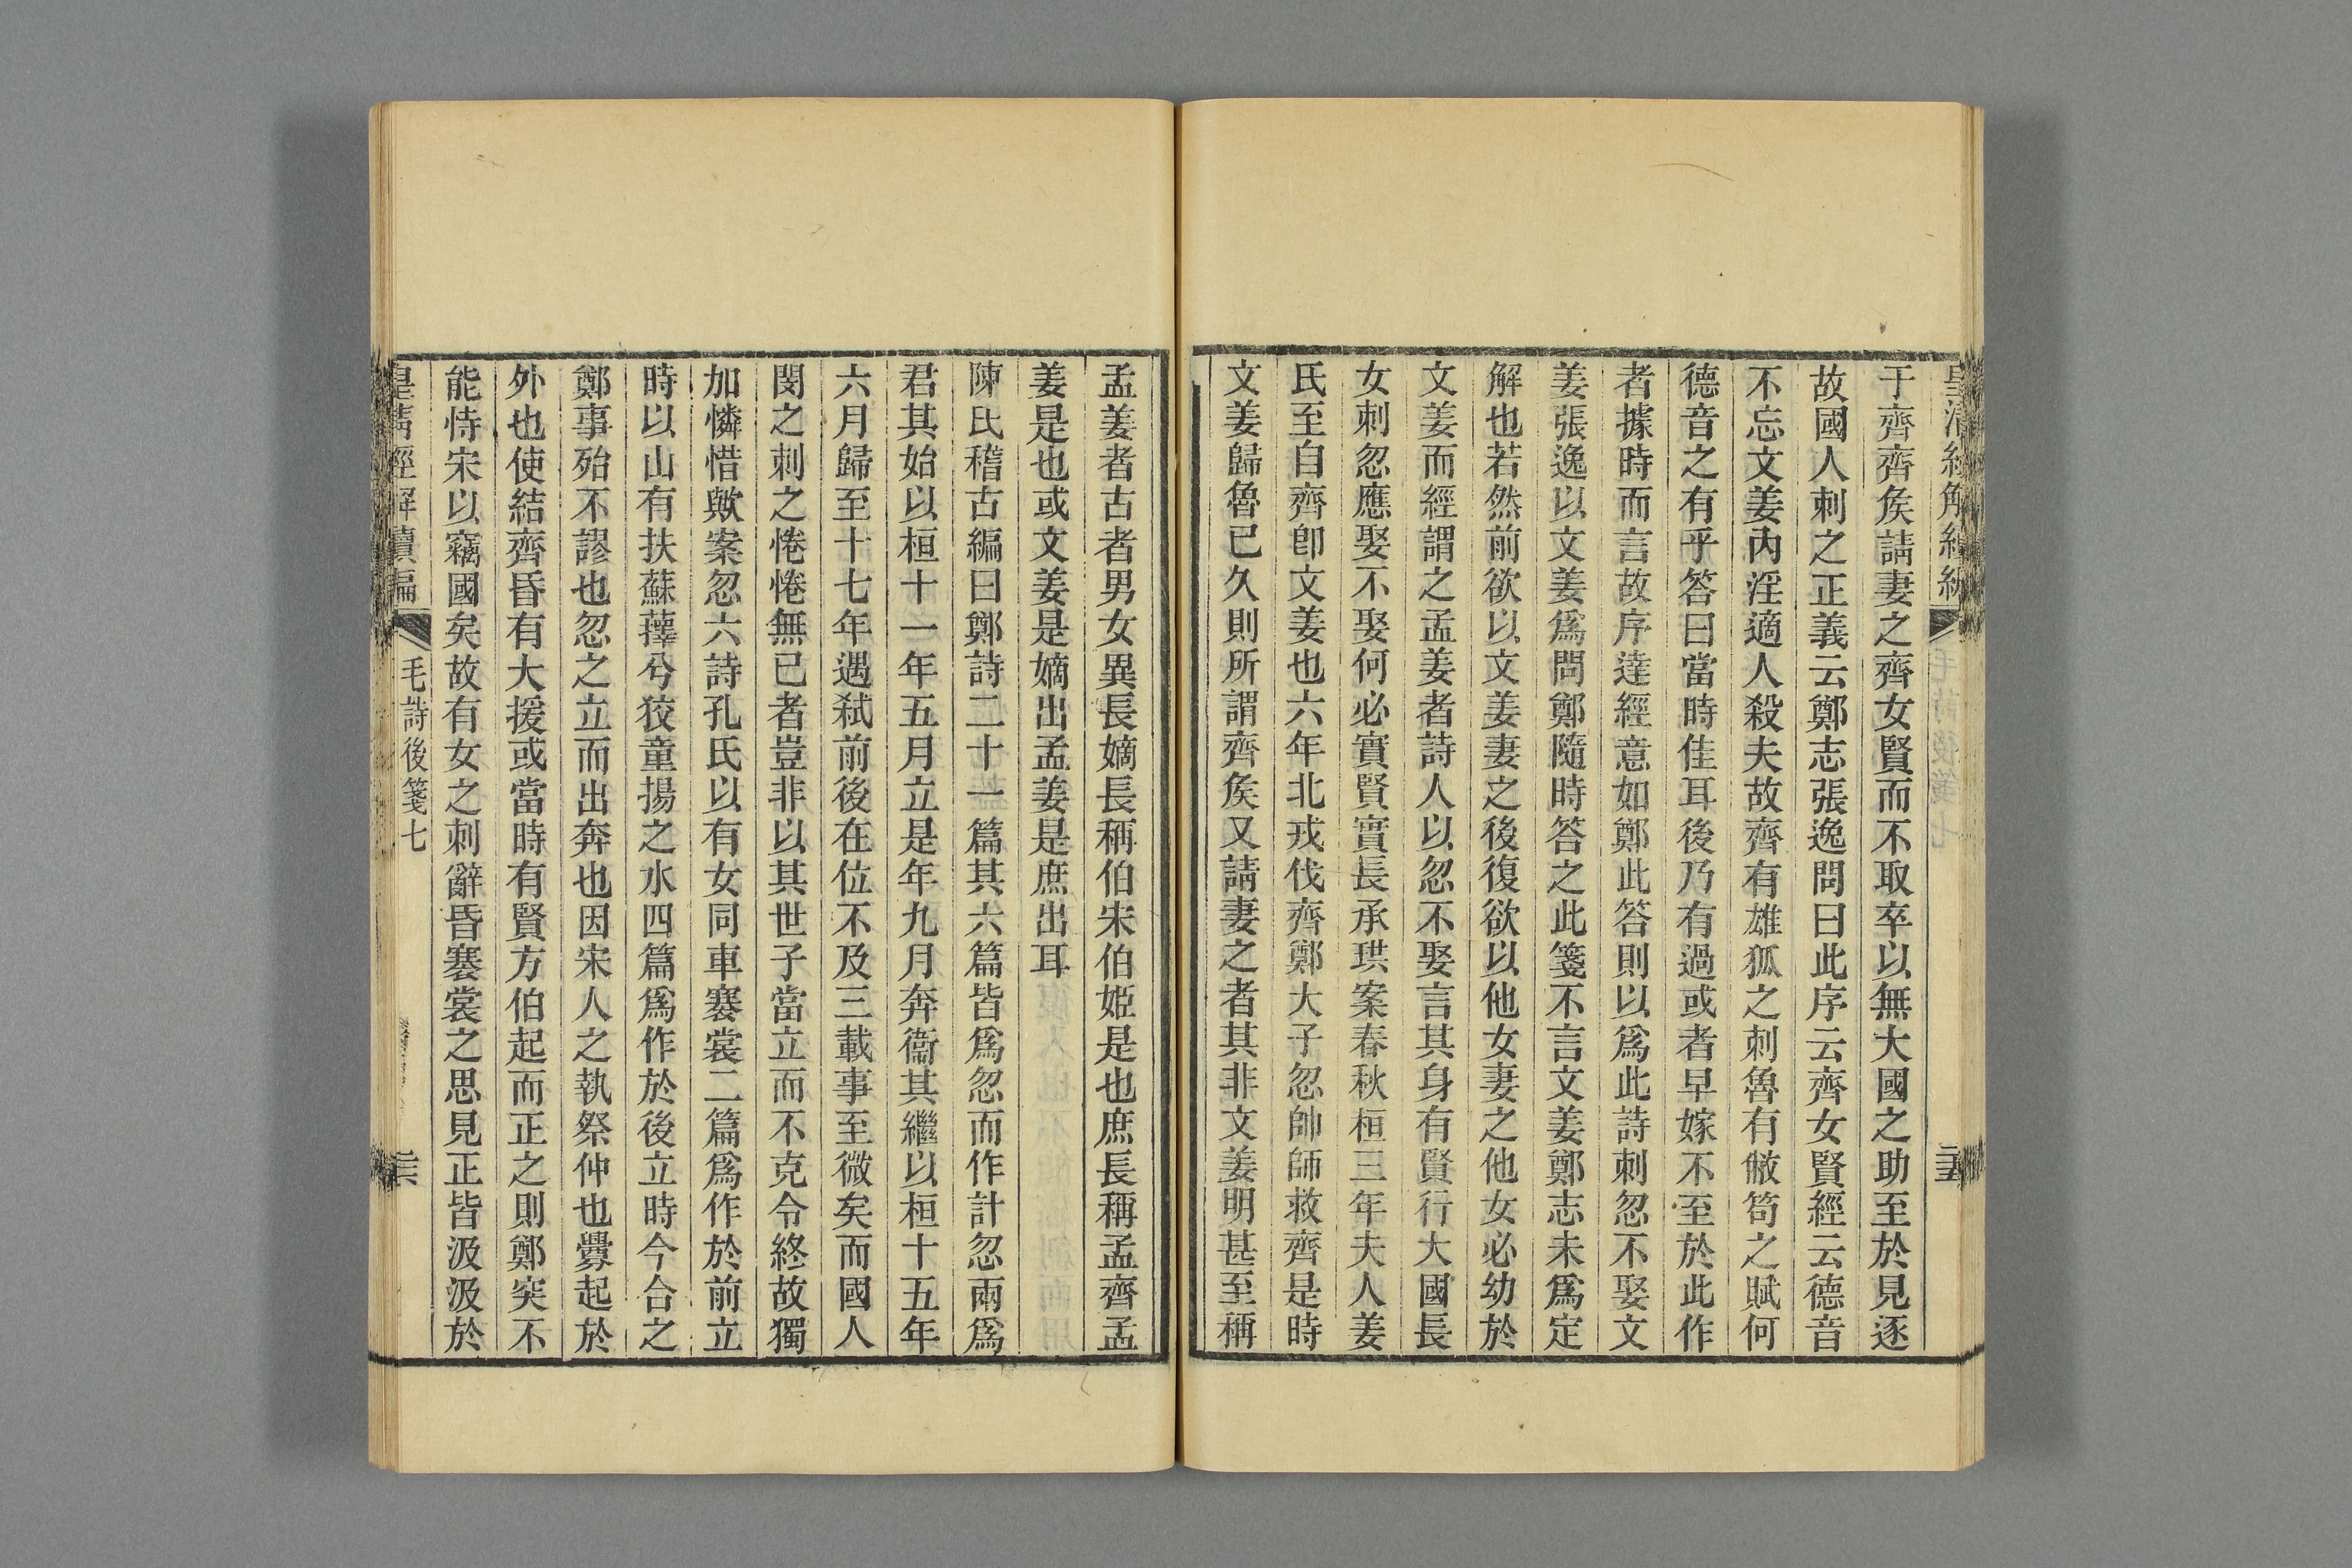 于齊齊矦請妻之齊女賢而不取卒以無大國之助至於見逐
故國人刺之正義云鄭志張逸問曰此序云齊女賢經云德音
不忘文姜內淫適人殺夫故齊有雄狐之刺魯有敝笱之賦何
德音之有乎答曰當時佳耳後乃有過或者早嫁不至於此作
者據時而言故序達經意如鄭此答則以爲此詩刺忽不娶文
姜張逸以文姜爲問鄭隨時答之此箋不言文姜鄭志未爲定
解也若然前欲以文姜妻之後復欲以他女妻之他女必幼於
文姜而經謂之孟姜者詩人以忽不娶言其身有賢行大國長
女刺忽應娶不娶何必實賢實長承珙案春秋桓三年夫人姜
氏至自齊卽文姜也六年北戎伐齊鄭大子忽帥師救齊是時
文姜歸魯已久則所謂齊矦又請妻之者其非文姜明甚至稱
孟姜者古者男女異長嫡長稱伯宋伯姬是也庶長稱孟齊孟
姜是也或文姜是嫡出孟姜是庶出耳
陳氏稽古編曰鄭詩二十一篇其六篇皆爲忽而作計忽兩爲
君其始以桓十一年五月立是年九月奔衞其繼以桓十五年
六月歸至十七年遇弒前後在位不及三載事至微矣而國人
閔之刺之惓惓無已者豈非以其世子當立而不克令終故獨
加憐惜歟案忽六詩孔氏以有女同車褰裳二篇爲作於前立
時以山有扶蘇蘀兮狡童揚之水四篇爲作於後立時今合之
鄭事殆不謬也忽之立而出奔也因宋人之執祭仲也釁起於
外也使結齊昏有大援或當時有賢方伯起而正之則鄭突不
能恃宋以竊國矣故有女之刺辭昏褰裳之思見正皆汲汲於
皇清經解續編
毛詩後箋七
二六